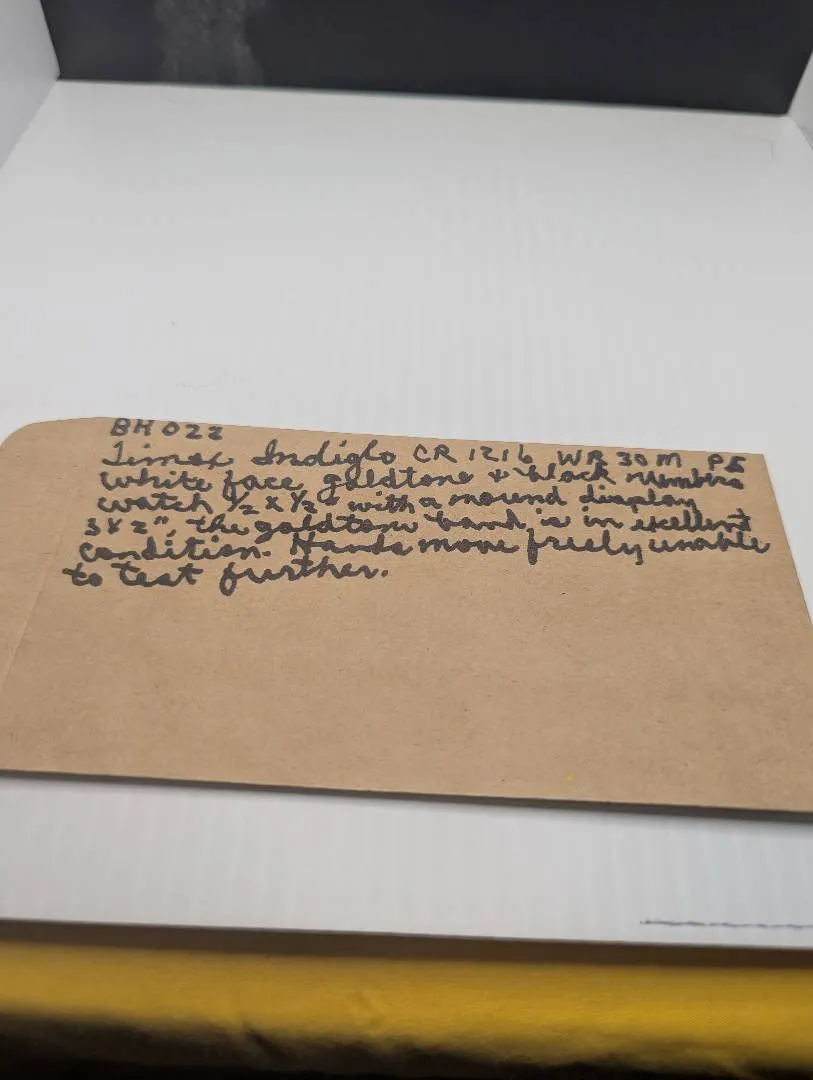 BH 022
Timex Indiglo CR 1216 WR 30 M P5
white face goldtone & black numbers
watch 1/2 x 1/2" with a mound display
3 x 2", the goldtone band is in excellent
condition. Hands move freely unable
to test further.